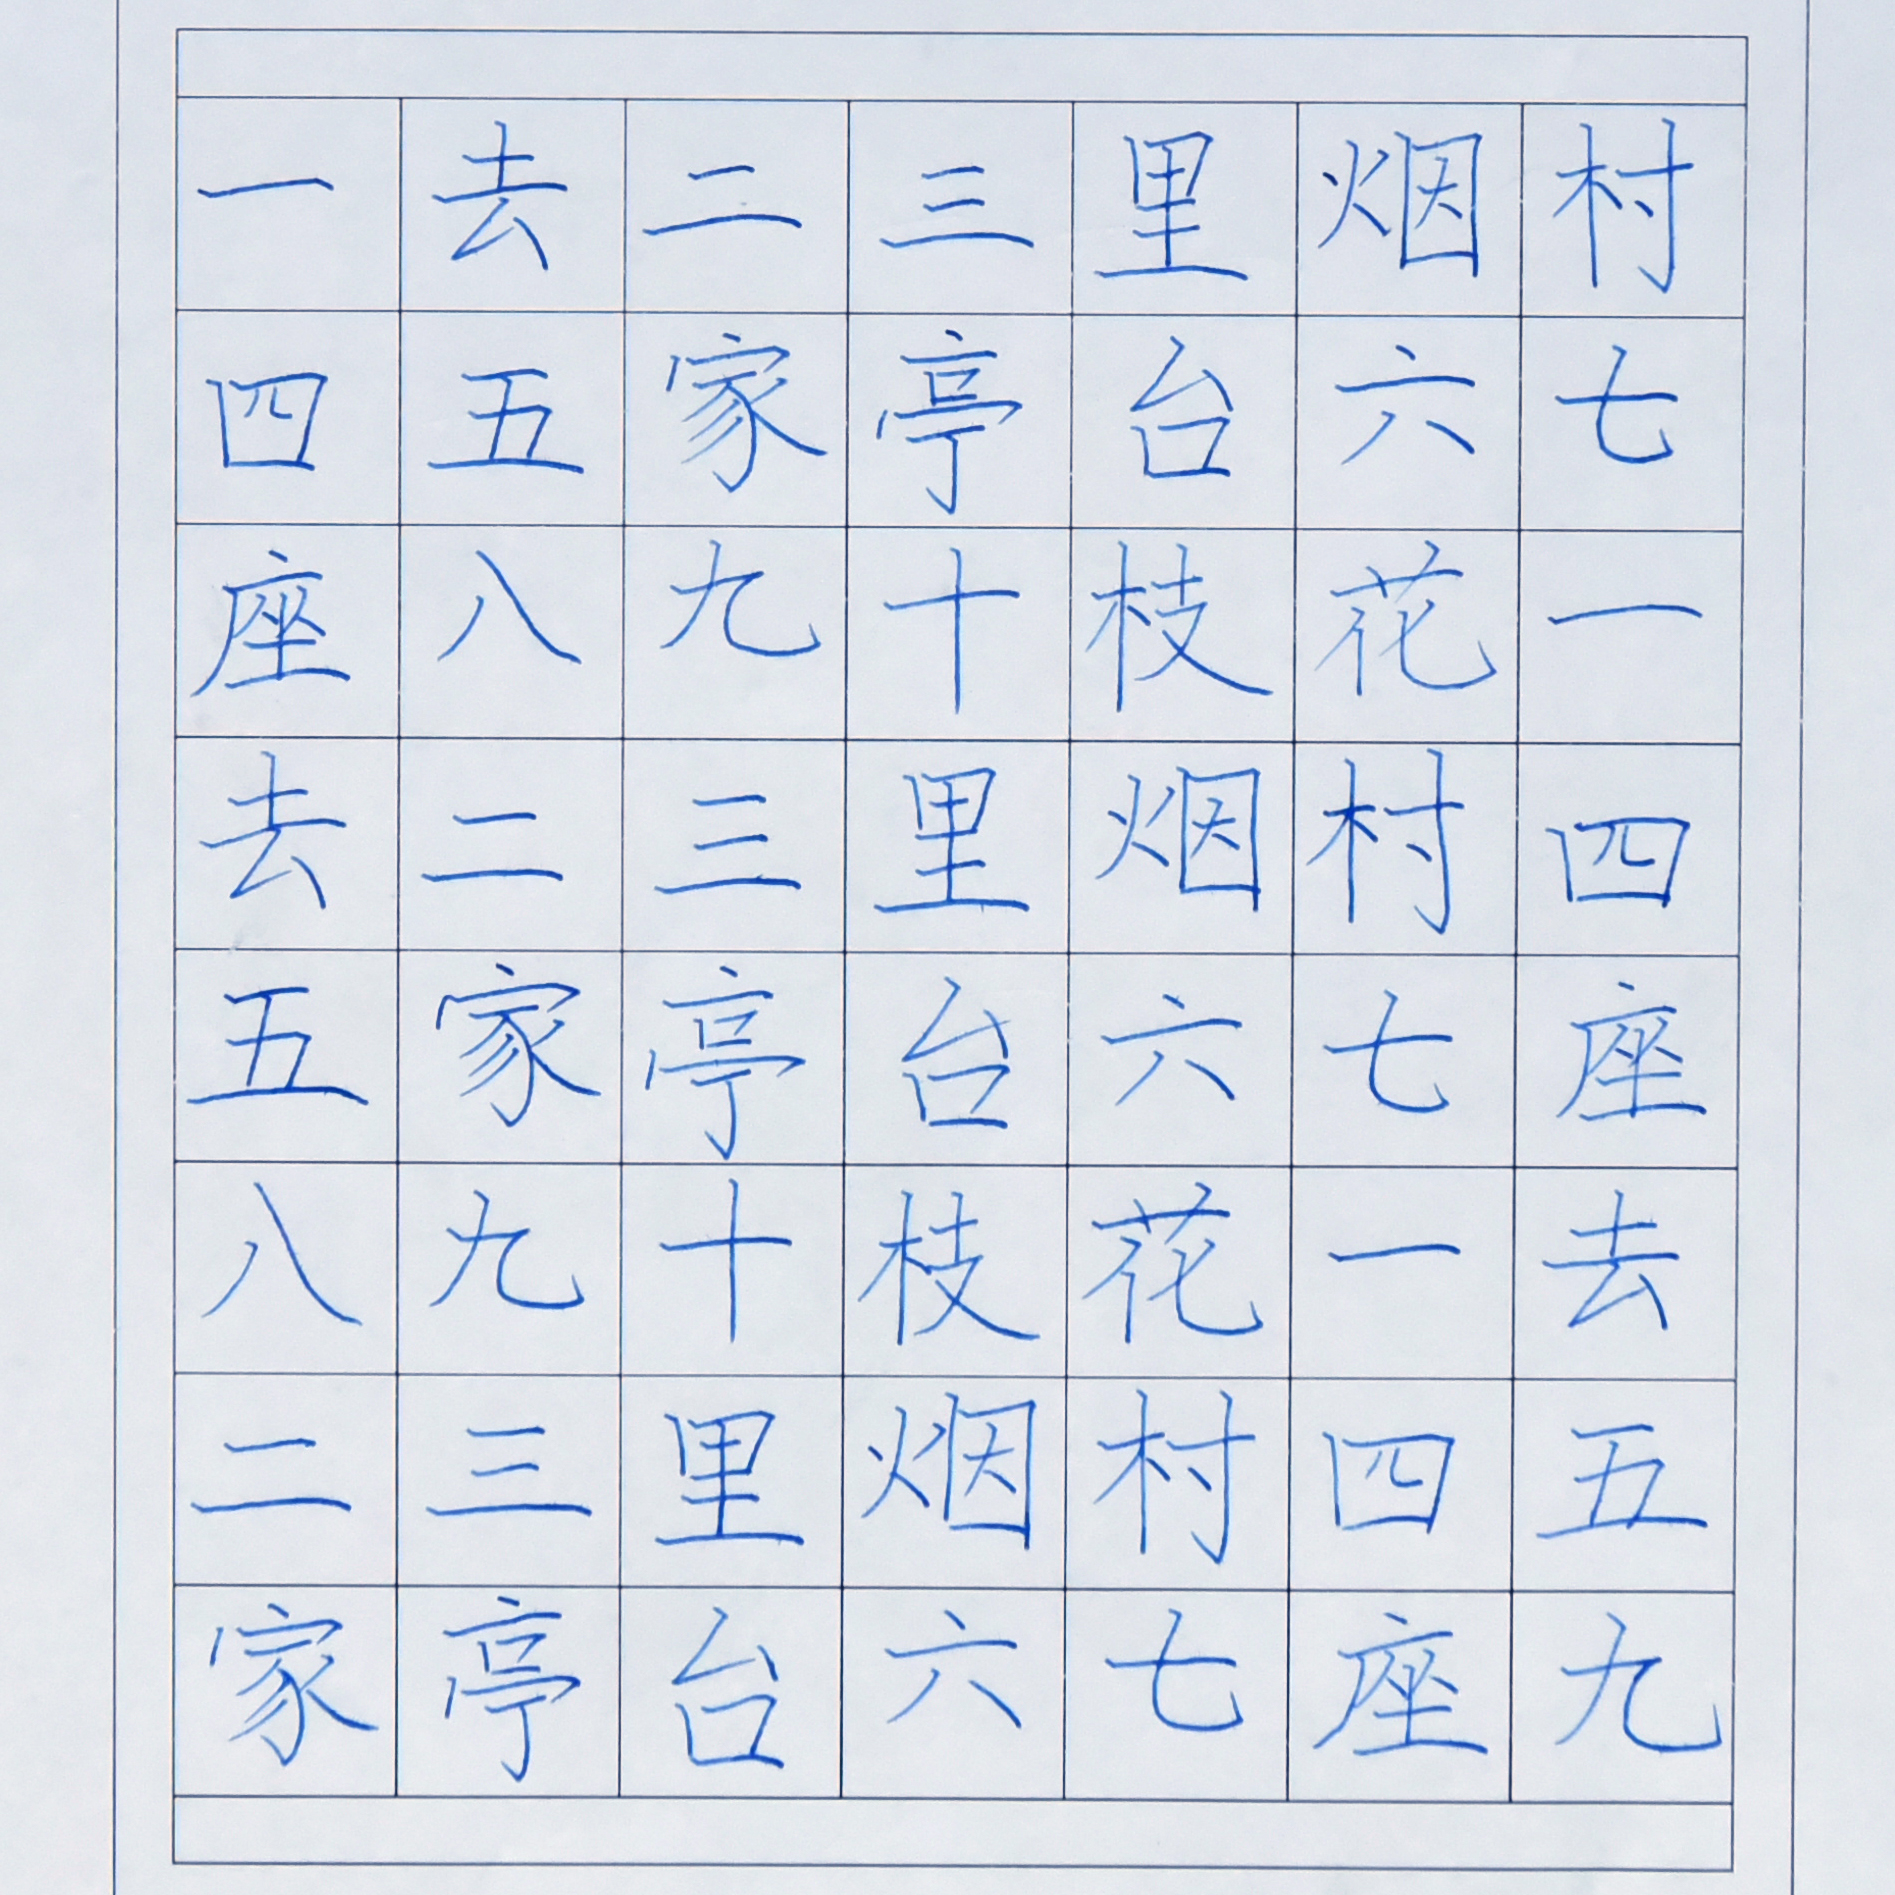 一去二三里烟村
四五家亭台六七
座八九十枝花一
去二三里烟村四
五家亭台六七座
八九十枝花一去
二三里烟村四五
家亭台六七座九